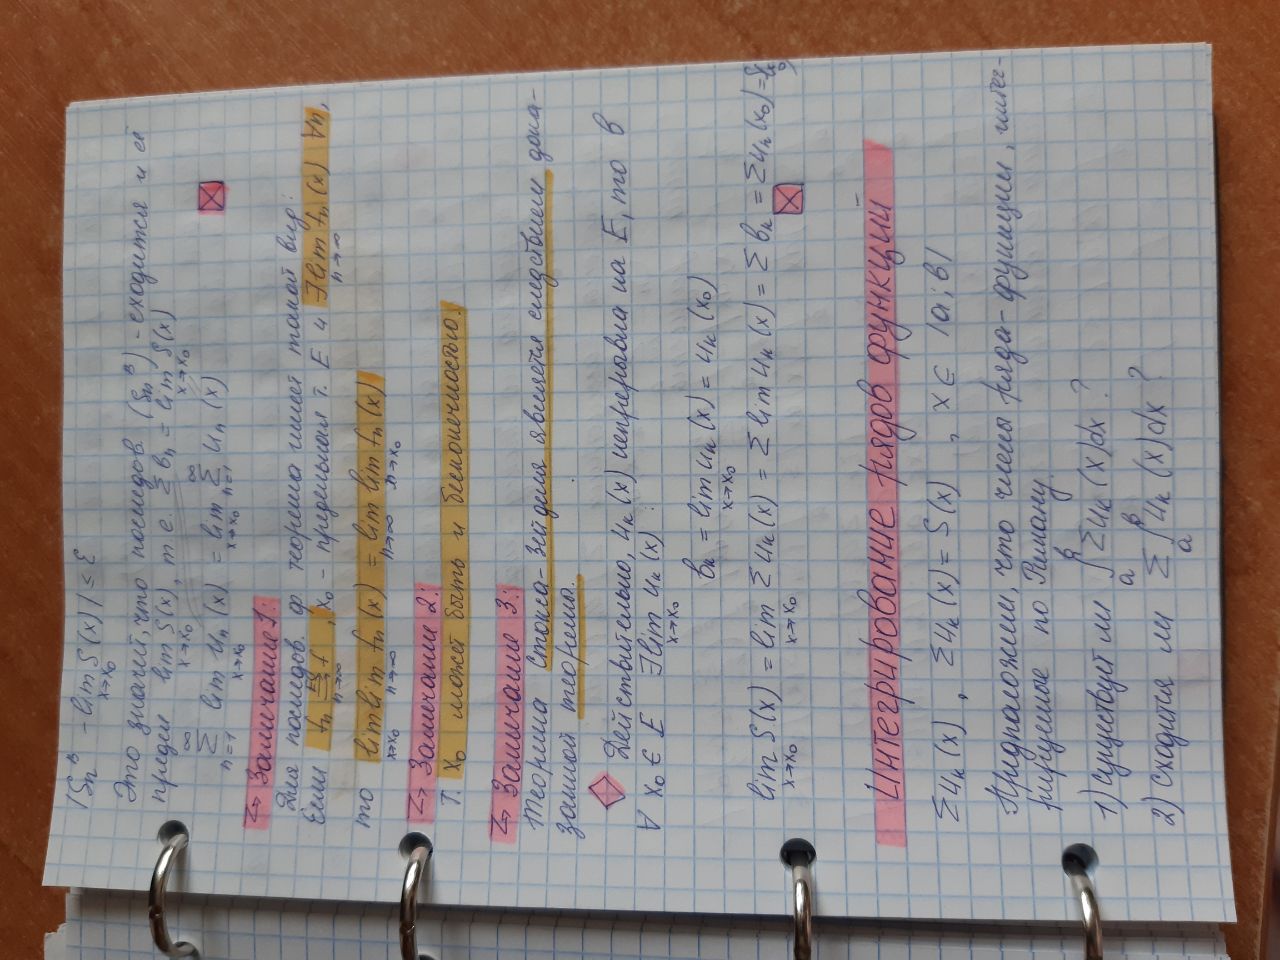 |Sₙᴮ - lim S(x)| ≤ ε
x→x₀
Это значит, что последов. (Sₙᴮ) - сходится и её
предел lim S(x), т.е. Σ вₙ = lim S(x)
x→x₀ x→x₀
∞ ∞
Σ lim uₙ(x) = lim Σ uₙ(x)
n=1 x→x₀ x→x₀ n=1
↳ Замечание 1:
Для последов. ф. теорема имеет такой вид:
Если fₙ ⇉ f, x₀ - предельная т. E и ∃ lim fₙ(x) ∀n,
n→∞ n→∞
то lim lim fₙ(x) = lim lim fₙ(x)
x→x₀ n→∞ n→∞ x→x₀
↳ Замечание 2:
Т. x₀ может быть и бесконечностью.
↳ Замечание 3:
Теорема Стокса-Зейделя является следствием дока-
занной теоремы.
Действительно, uₖ(x) непрерывна на E, то в
∀ x₀ ∈ E ∃ lim uₖ(x) :
x→x₀
вₖ = lim uₖ(x) = uₖ(x₀)
x→x₀
lim S(x) = lim Σ uₖ(x) = Σ lim uₖ(x) = Σ вₖ = Σ uₖ(x₀) = S(x₀)
x→x₀ x→x₀
Интегрирование рядов функций
Σ uₖ(x), Σ uₖ(x) = S(x), x ∈ |a; в|
Предположим, что члены ряда - функции, интег-
рируемые по Риману.
1) Существует ли ∫ₐᴮ Σ uₖ(x)dx ?
2) Сходится ли Σ ∫ₐᴮ uₖ(x)dx ?